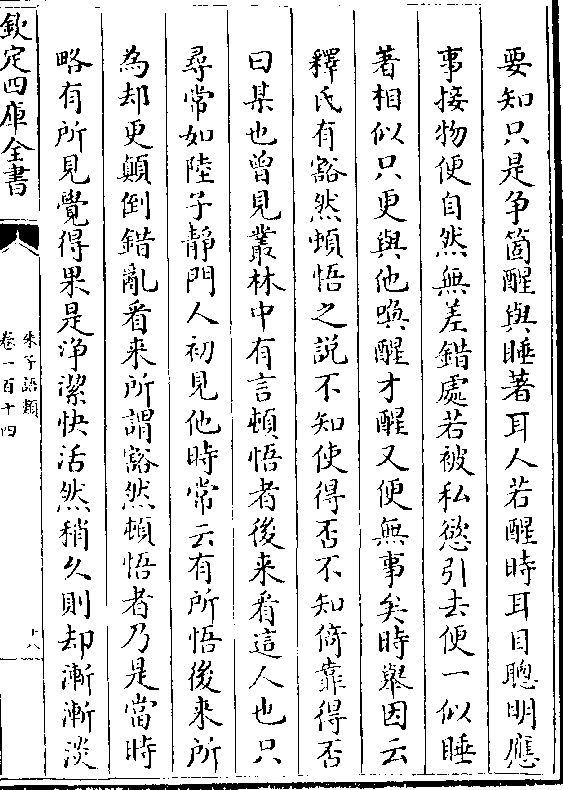 要知只是争箇醒與睡著耳人若醒時耳目聰明應
事接物便自然無差錯處若被私慾引去便一似睡
著相似只更與他喚醒才醒又便無事矣時舉因云
釋氏有豁然頓悟之說不知使得否不知倚靠得否
曰某也曾見叢林中有言頓悟者後来看這人也只
尋常如陸子靜門人初見他時常云有所悟後来所
為却更顛倒錯亂看来所謂豁然頓悟者乃是當時
略有所見覺得果是浄潔快活然稍久則却漸漸淡
欽定四庫全書
朱子語類
卷一百十四
十八